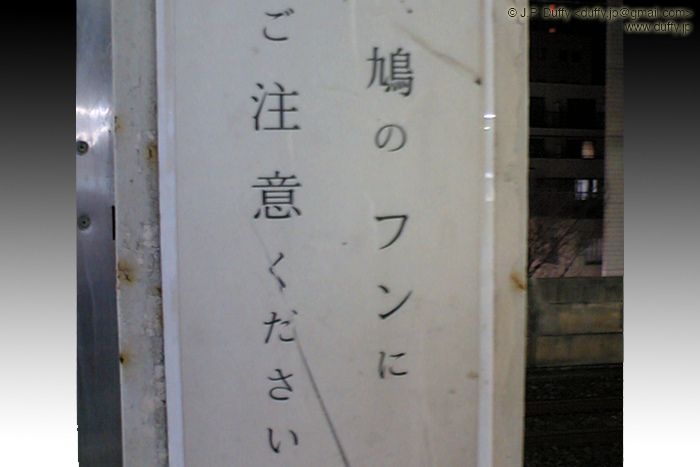 © J.P. Duffy <duffy.jp@gmail.com>
www.duffy.jp
鳩のフンに
ご注意ください